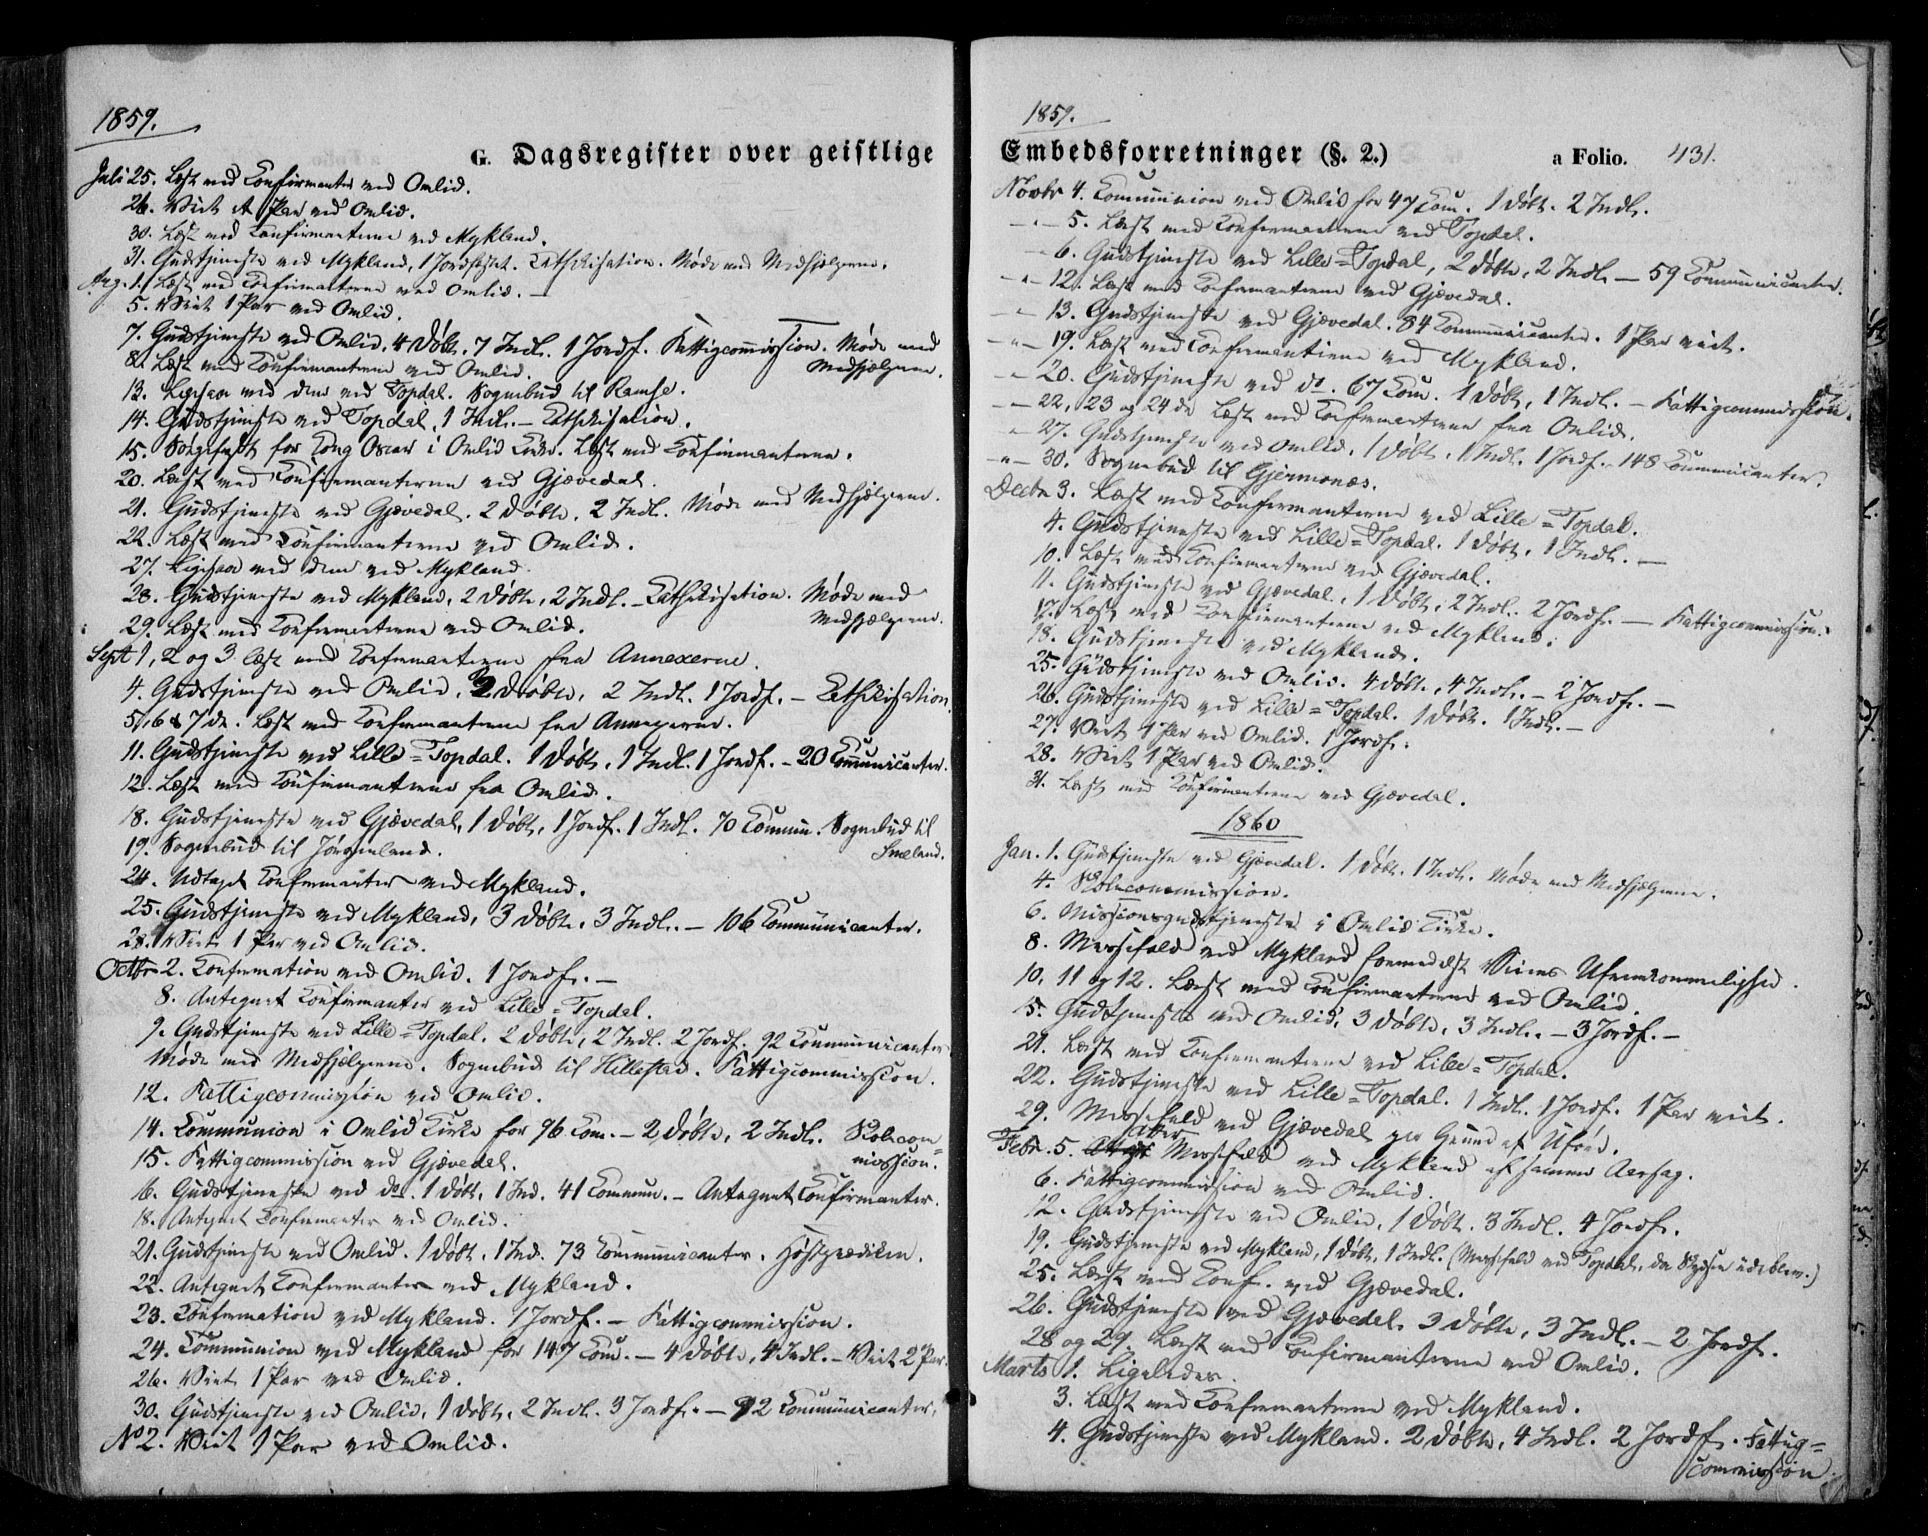 1859.
G. Dagsregister over geistlige
Juli 25. Læst med Confirmanter ved Omlid.
26. Viet et Par ved Omlid.
30. Læst med Confirmanterne ved Mykland.
31. Gudstjeneste ved Mykland, 1 Jordfæstet. Cathekisation. Møde med Medhjelperne.
Aug. 1. Læst med Confirmanterne ved Omlid. —
5. Viet 1 Par ved Omlid.
7. Gudstjeneste ved Omlid. 4 Døbt. 7 Indl. 1 Jordf. Fattigcommission. Møde med
Medhjelperne.
8. Læst med Confirmanterne ved Omlid.
13. Ligesaa med dem ved Topdal. Sognebud til Ramse.
14. Gudstjeneste ved Topdal, 1 Indl. – Cathekisation.
15. Sørgefest for Kong Oscar i Omlid Kirke. Læst med Confirmanterne.
20. Læst med Confirmanterne ved Gjøvedal.
21. Gudstjeneste ved Gjøvedal. 2 Døbte. 2 Indl. Møde med Medhjelperne.
22. Læst med Confirmanterne ved Omlid.
27. Ligesaa med dem ved Mykland.
28. Gudstjeneste ved Mykland, 2 Døbte, 2 Indl. – Cathekisation. Møde med
Medhjelperne.
29. Læst med Confirmanterne ved Omlid.
Sept 1, 2 og 3 læst med Confirmanterne fra Annexerne.
4. Gudstjeneste ved Omlid, 2 Døbte, 2 Indl. 1 Jordf. – Cathekisation.
5, 6 & 7de. Læst med Confirmanterne fra Annexerne.
11. Gudstjeneste ved Lille=Topdal. 1 Døbt, 1 Indl. 1 Jordf. – 20 Communicanter.
12. Læst med Confirmanterne fra Omlid.
18. Gudstjeneste ved Gjøvedal, 1 Døbt, 1 Jordf. 1 Indl. 70 Commun. Sognebud til
Sneland.
19. Sognebud til Jørgenland.
24. Udtaget Confirmanter ved Mykland.
25. Gudstjeneste ved Mykland, 3 Døbte. 3 Indl. – 106 Communicanter.
28. Viet 1 Par ved Omlid.
Octbr 2. Confirmation ved Omlid. 1 Jordf. —
8. Antegnet Confirmanter ved Lille=Topdal.
9. Gudstjeneste ved Lille=Topdal. 2 Døbte, 2 Indl. 2 Jordf. 92 Communicanter
Møde med Medhjelperne. Sognebud til Hillestad. Fattigcommission.
12. Fattigcommission ved Omlid.
14. Communion i Omlid Kirke for 96 Com. – 2 Døbte, 2 Indl. Skolecom=
mission.
15. Fattigcommission ved Gjøvedal.
16. Gudstjeneste ved do. 1 Døbt, 1 Ind. 41 Commun. – Antegnet Confirmanter.
18. Antegnet Confirmanter ved Omlid.
21. Gudstjeneste ved Omlid. 1 Døbt. 1 Ind. 73 Communicanter. Høstprædiken.
22. Antegnet Confirmanter ved Mykland.
23. Confirmation ved Mykland. 1 Jordf. – Fattigcommission.
24. Communion ved Mykland for 147 Com. – 4 Døbte, 4 Indl. – Viet 2 Par.
26. Viet 1 Par ved Omlid.
30. Gudstjeneste ved Omlid, 1 Døbt, 2 Indl. 3 Jordf. – 92 Communicanter.
No 2. Viet 1 Par ved Omlid.
1859.
Embedsforretninger (§. 2.) a Folio. 431.
Novbr 4. Communion ved Omlid for 47 Com. 1 Døbt. 2 Indl.
–"– 5. Læst med Confirmanterne ved Topdal.
– 6. Gudstjeneste ved Lille=Topdal, 2 Døbte, 2 Indl. – 59 Communicanter.
–"– 12. Læst med Confirmanterne ved Gjøvedal.
–"– 13. Gudstjeneste ved Gjøvedal. 84 Communicanter. 1 Par viet.
–"– 19. Læst med Confirmanterne ved Mykland.
–"– 20. Gudstjeneste ved do. 67 Com. 1 Døbt, 1 Indl. – Fattigcommission.
–"– 22, 23 og 24de Læst med Confirmanterne fra Omlid.
–"– 27. Gudstjeneste ved Omlid. 1 Døbt. 1 Indl. 1 Jordf. – 148 Communicanter.
–"– 30. Sognebud til Gjermonæs.
Decbr 3. Læst med Confirmanterne ved Lille=Topdal.
4. Gudstjeneste ved Lille=Topdal. 1 Døbt, 1 Indl. —
10. Læst med Confirmanterne ved Gjøvedal.
11. Gudstjeneste ved Gjøvedal, 1 Døbt, 2 Indl. 2 Jordf. – Fattigcommission.
17. Læst med Confirmanterne ved Mykland.
18. Gudstjeneste ved Mykland.
25. Gudstjeneste ved Omlid. 4 Døbte, 4 Indl. – 2 Jordf. —
26. Gudstjeneste ved Lille=Topdal. 1 Døbt. 1 Indl. —
27. Viet 1 Par ved Omlid. 1 Jordf.
28. Viet 1 Par ved Omlid.
31. Læst med Confirmanterne ved Gjøvedal.
1860
Jan. 1. Gudstjeneste ved Gjøvedal. 1 Døbt. 1 Indl. Møde med Medhjelperne.
4. Skolecommission.
6. Missionsgudstjeneste i Omlid Kirke.
8. Messefald ved Mykland formedelst Veiens Ufremkommelighed.
10, 11 og 12. Læst med Confirmanterne ved Omlid.
15. Gudstjeneste ved Omlid, 3 Døbte, 3 Indl. – 3 Jordf. —
21. Læst med Confirmanterne ved Lille=Topdal.
22. Gudstjeneste ved Lille=Topdal. 1 Indl. 1 Jordf. 1 Par viet.
29. Messefald ved Gjøvedal paa Grund af Uføre.
Febr. 5. atter Messefald ved Mykland af samme Aarsag.
6. Fattigcommission ved Omlid.
12. Gudstjeneste ved Omlid, 1 Døbt. 3 Indl. 4 Jordf.
19. Gudstjeneste ved Mykland, 1 Døbt, 1 Indl. (Messefald ved Topdal, da Skydsen udeblev.)
25. Læst med Conf. ved Gjøvedal.
26. Gudstjeneste ved Gjøvedal. 3 Døbte, 3 Indl. – 2 Jordf.
28 og 29. Læst med Confirmanterne ved Omlid.
Marts 1. Ligeledes.
3. Læst med Confirmanterne ved Mykland.
4. Gudstjeneste ved Mykland. 2 Døbte, 4 Indl. 2 Jordf. Fattig=
commission.